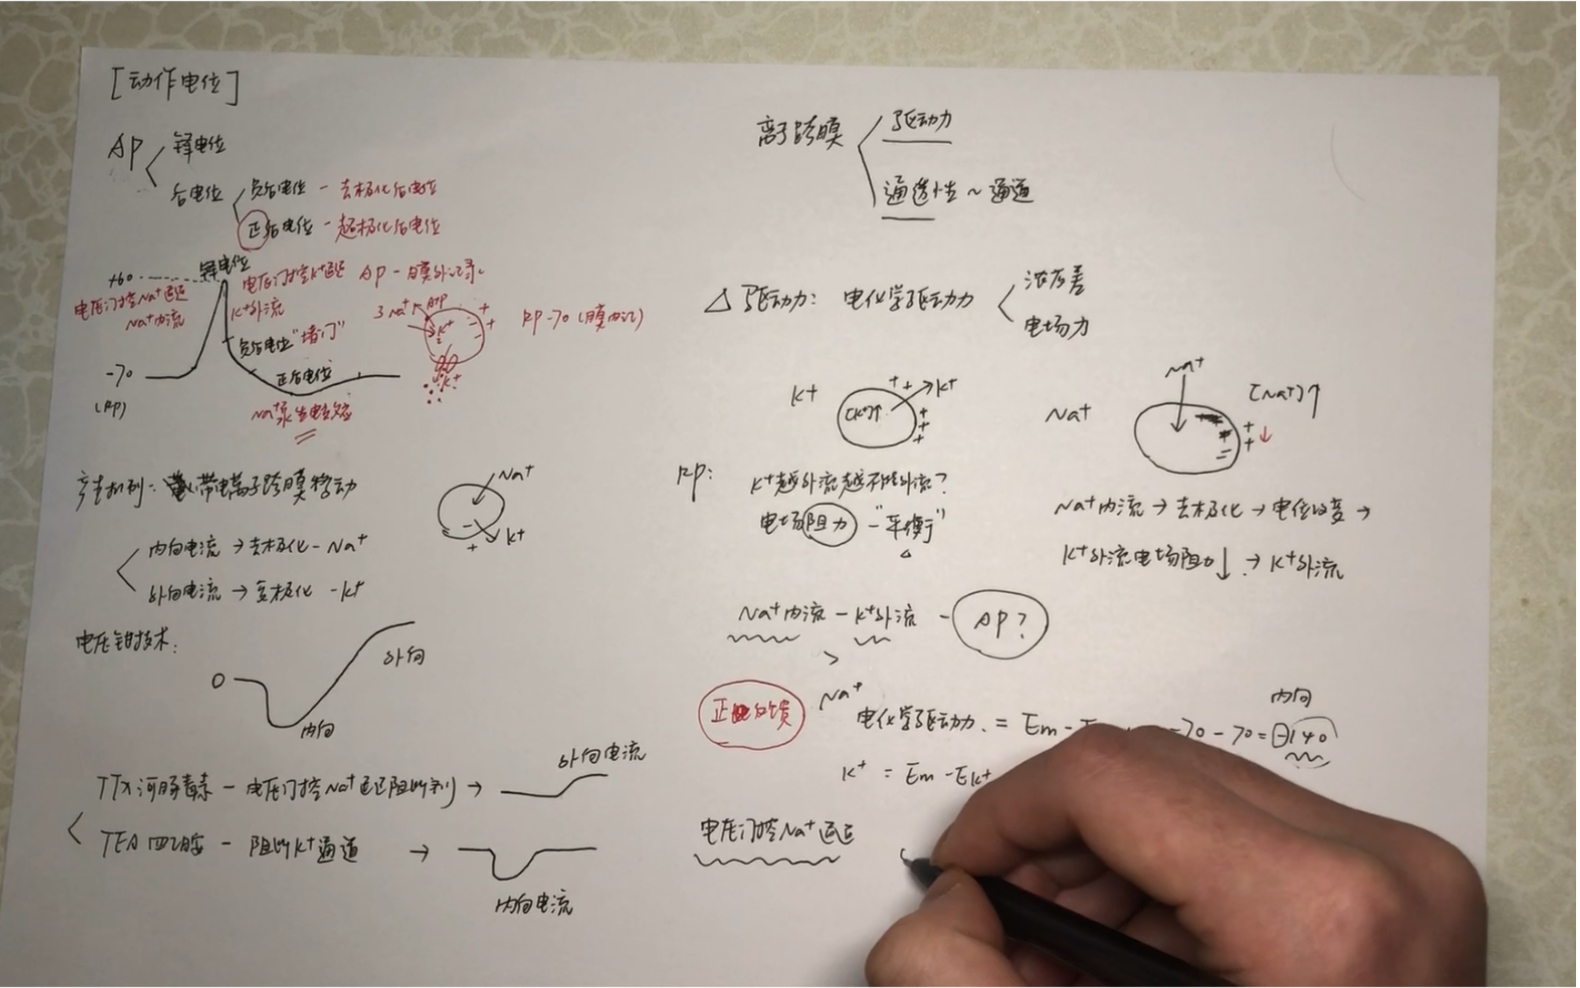 [动作电位]
AP
锋电位
后电位
负后电位 - 去极化后电位
正后电位 - 超极化后电位
+60
锋电位
电压门控Na+通道
Na+内流
电压门控K+通道
K+外流
AP - 膜外记录
RP -70 (膜内记)
3 Na+
ATP
K+
K+
负后电位 "堵门"
正后电位
-70
(RP)
Na+泵生电效应
产生机制: 带电离子跨膜移动
Na+
K+
内向电流 → 去极化 - Na+
外向电流 → 复极化 - K+
电压钳技术:
0
外向
内向
TTX 河豚毒素 - 电压门控Na+通道阻断剂 →
外向电流
TEA 四乙胺 - 阻断K+通道 →
内向电流
离子跨膜
驱动力
通透性 ~ 通道
△ 驱动力: 电化学驱动力
浓度差
电场力
K+
[K+]↑
++
K+
+
+
+
Na+
Na+
[Na+]↑
+
+
↓
RP:
K+越外流越不能外流?
电场阻力 - "平衡"
△
Na+内流 → 去极化 → 电位改变 →
K+外流电场阻力↓ → K+外流
Na+内流 - K+外流 - AP?
>
正反馈
Na+
电化学驱动力 = Em -
-70 - 70 = -140
内向
K+ = Em - EK+
电压门控Na+通道